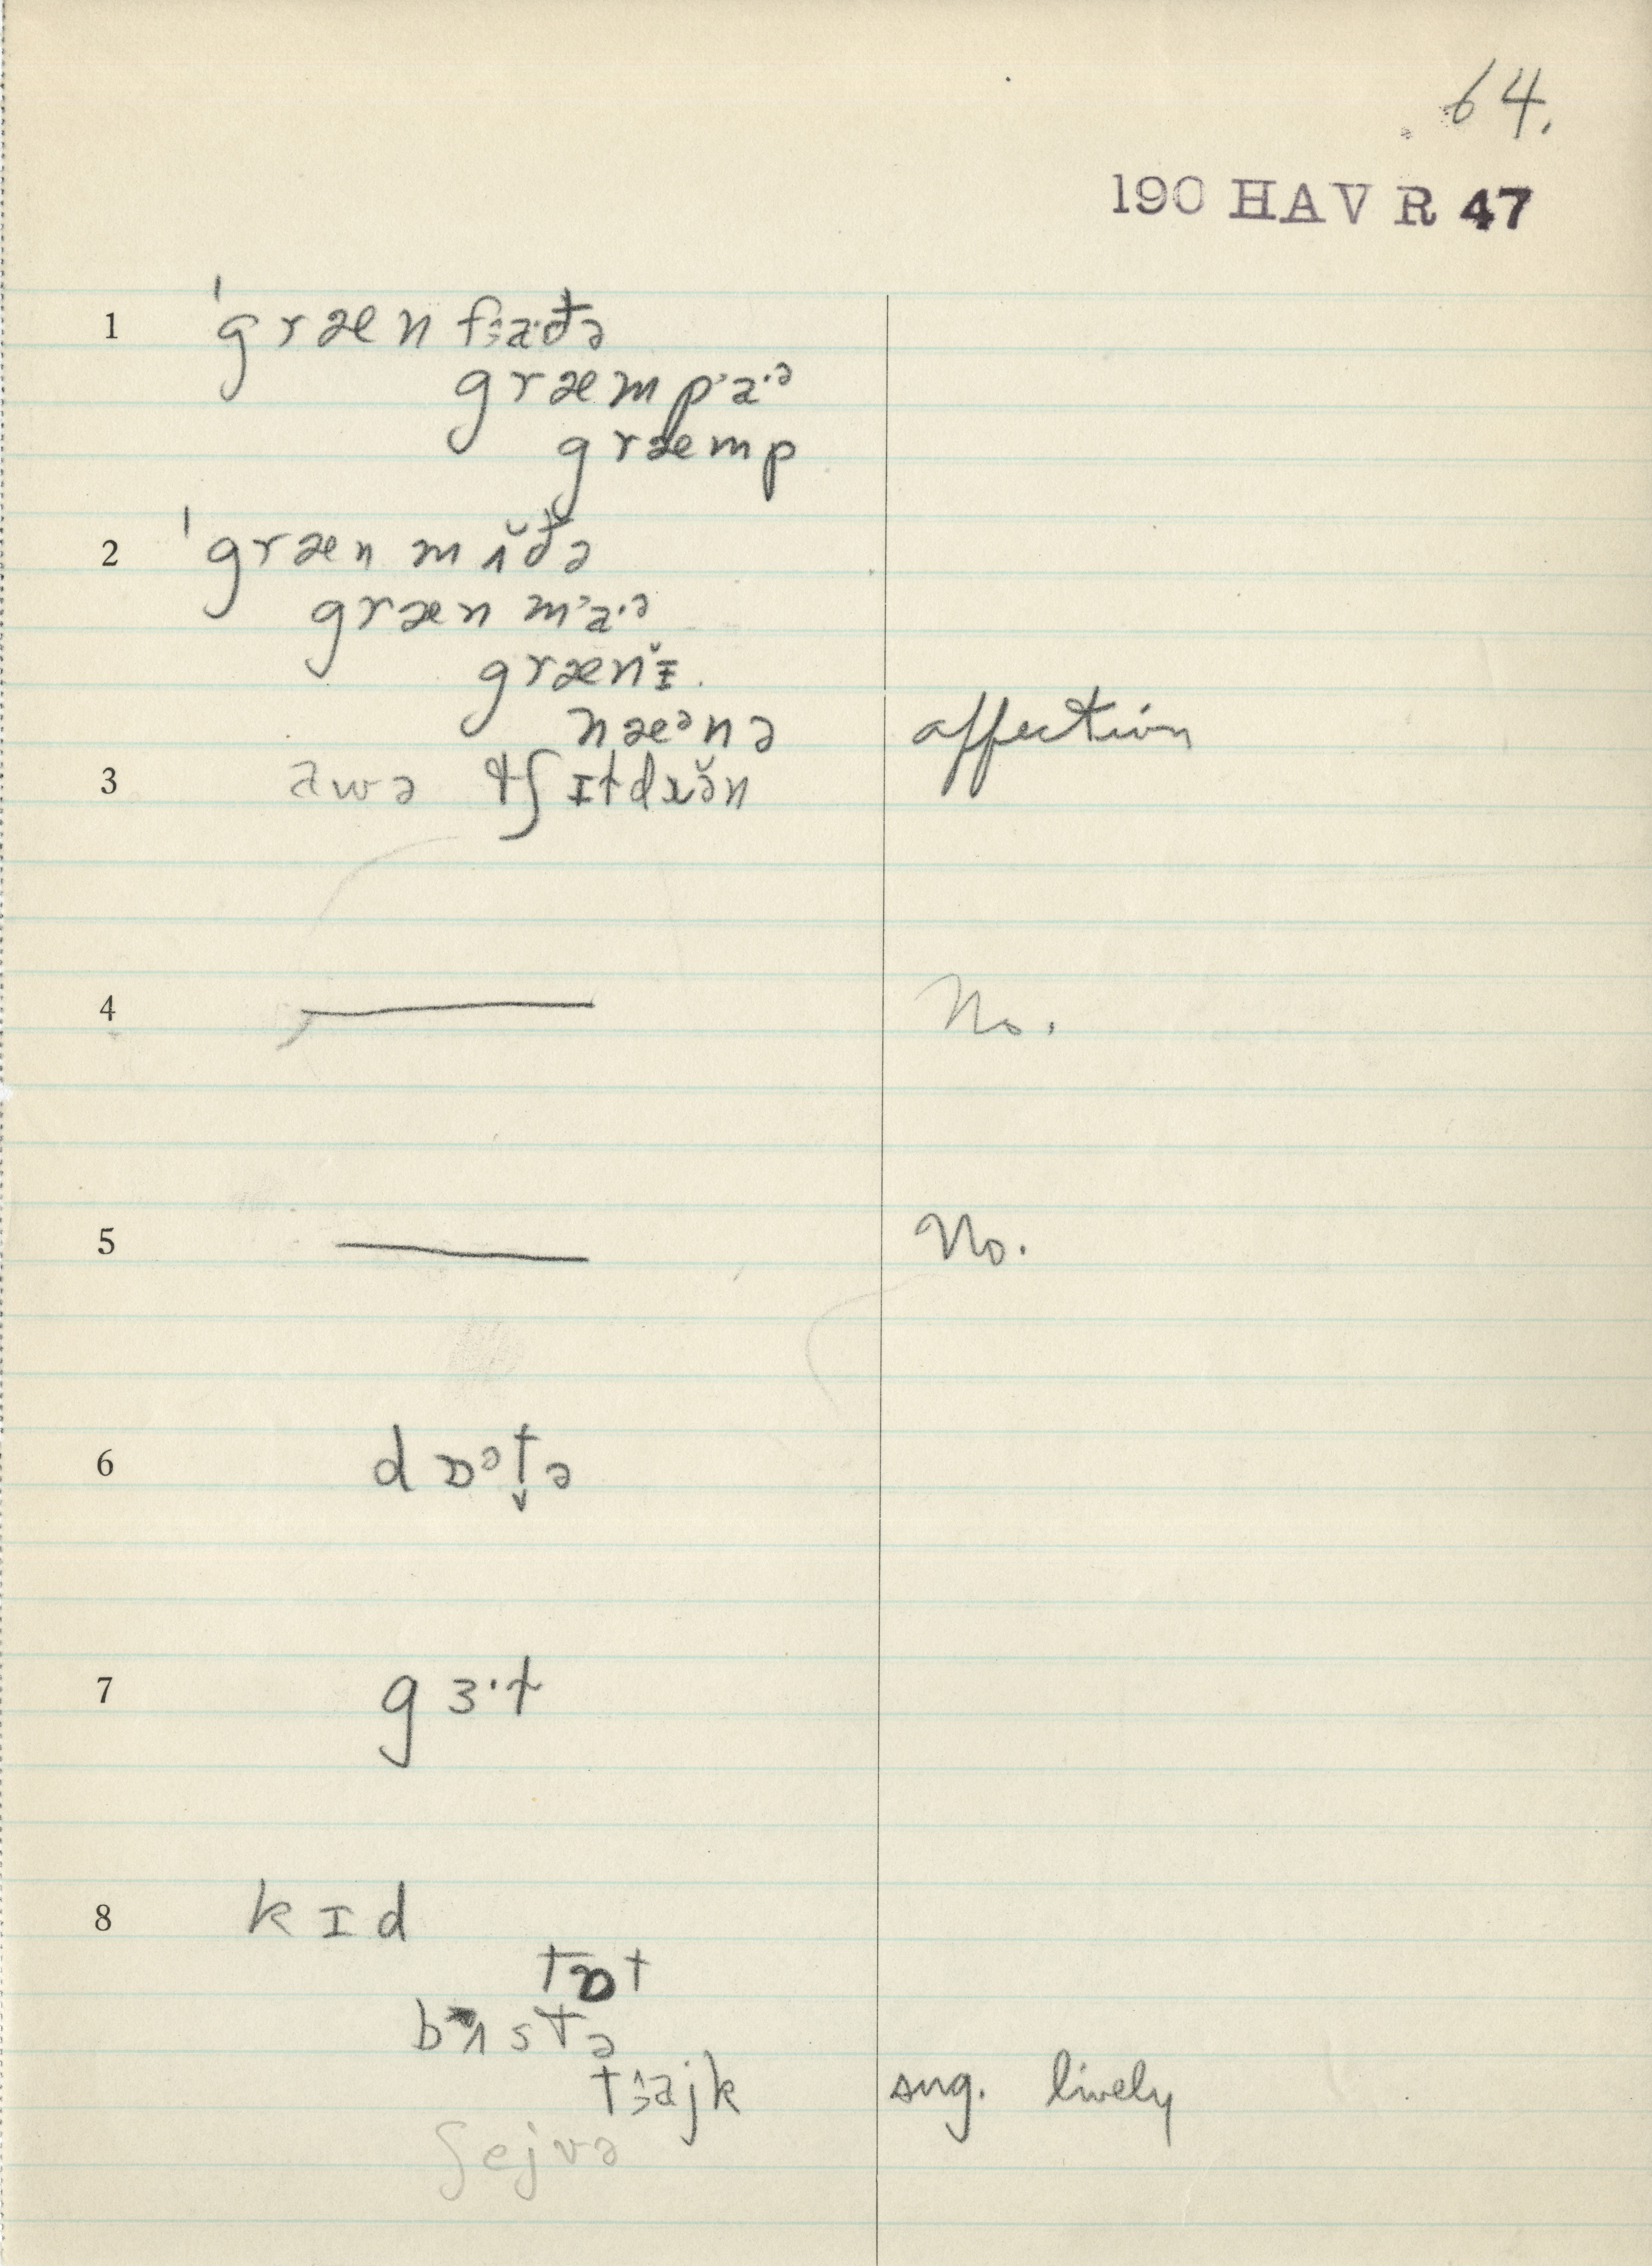 64.
190 HAV R 47
1 ˈgræn fɜaðə
græmp'a·ᵊ
græmp
2 ˈgræn mʌ̆ðə
græn m'a·ᵊ
grænɪ̆.
næᵊnə affection
3 awə tʃɪldrə̆n
4 — No.
5 — No.
6 dɒᵊt̬ə
7 gɜ·ɫ
8 kɪd
tɒt
bʌstə
tɜajk sug. lively
ʃejvə